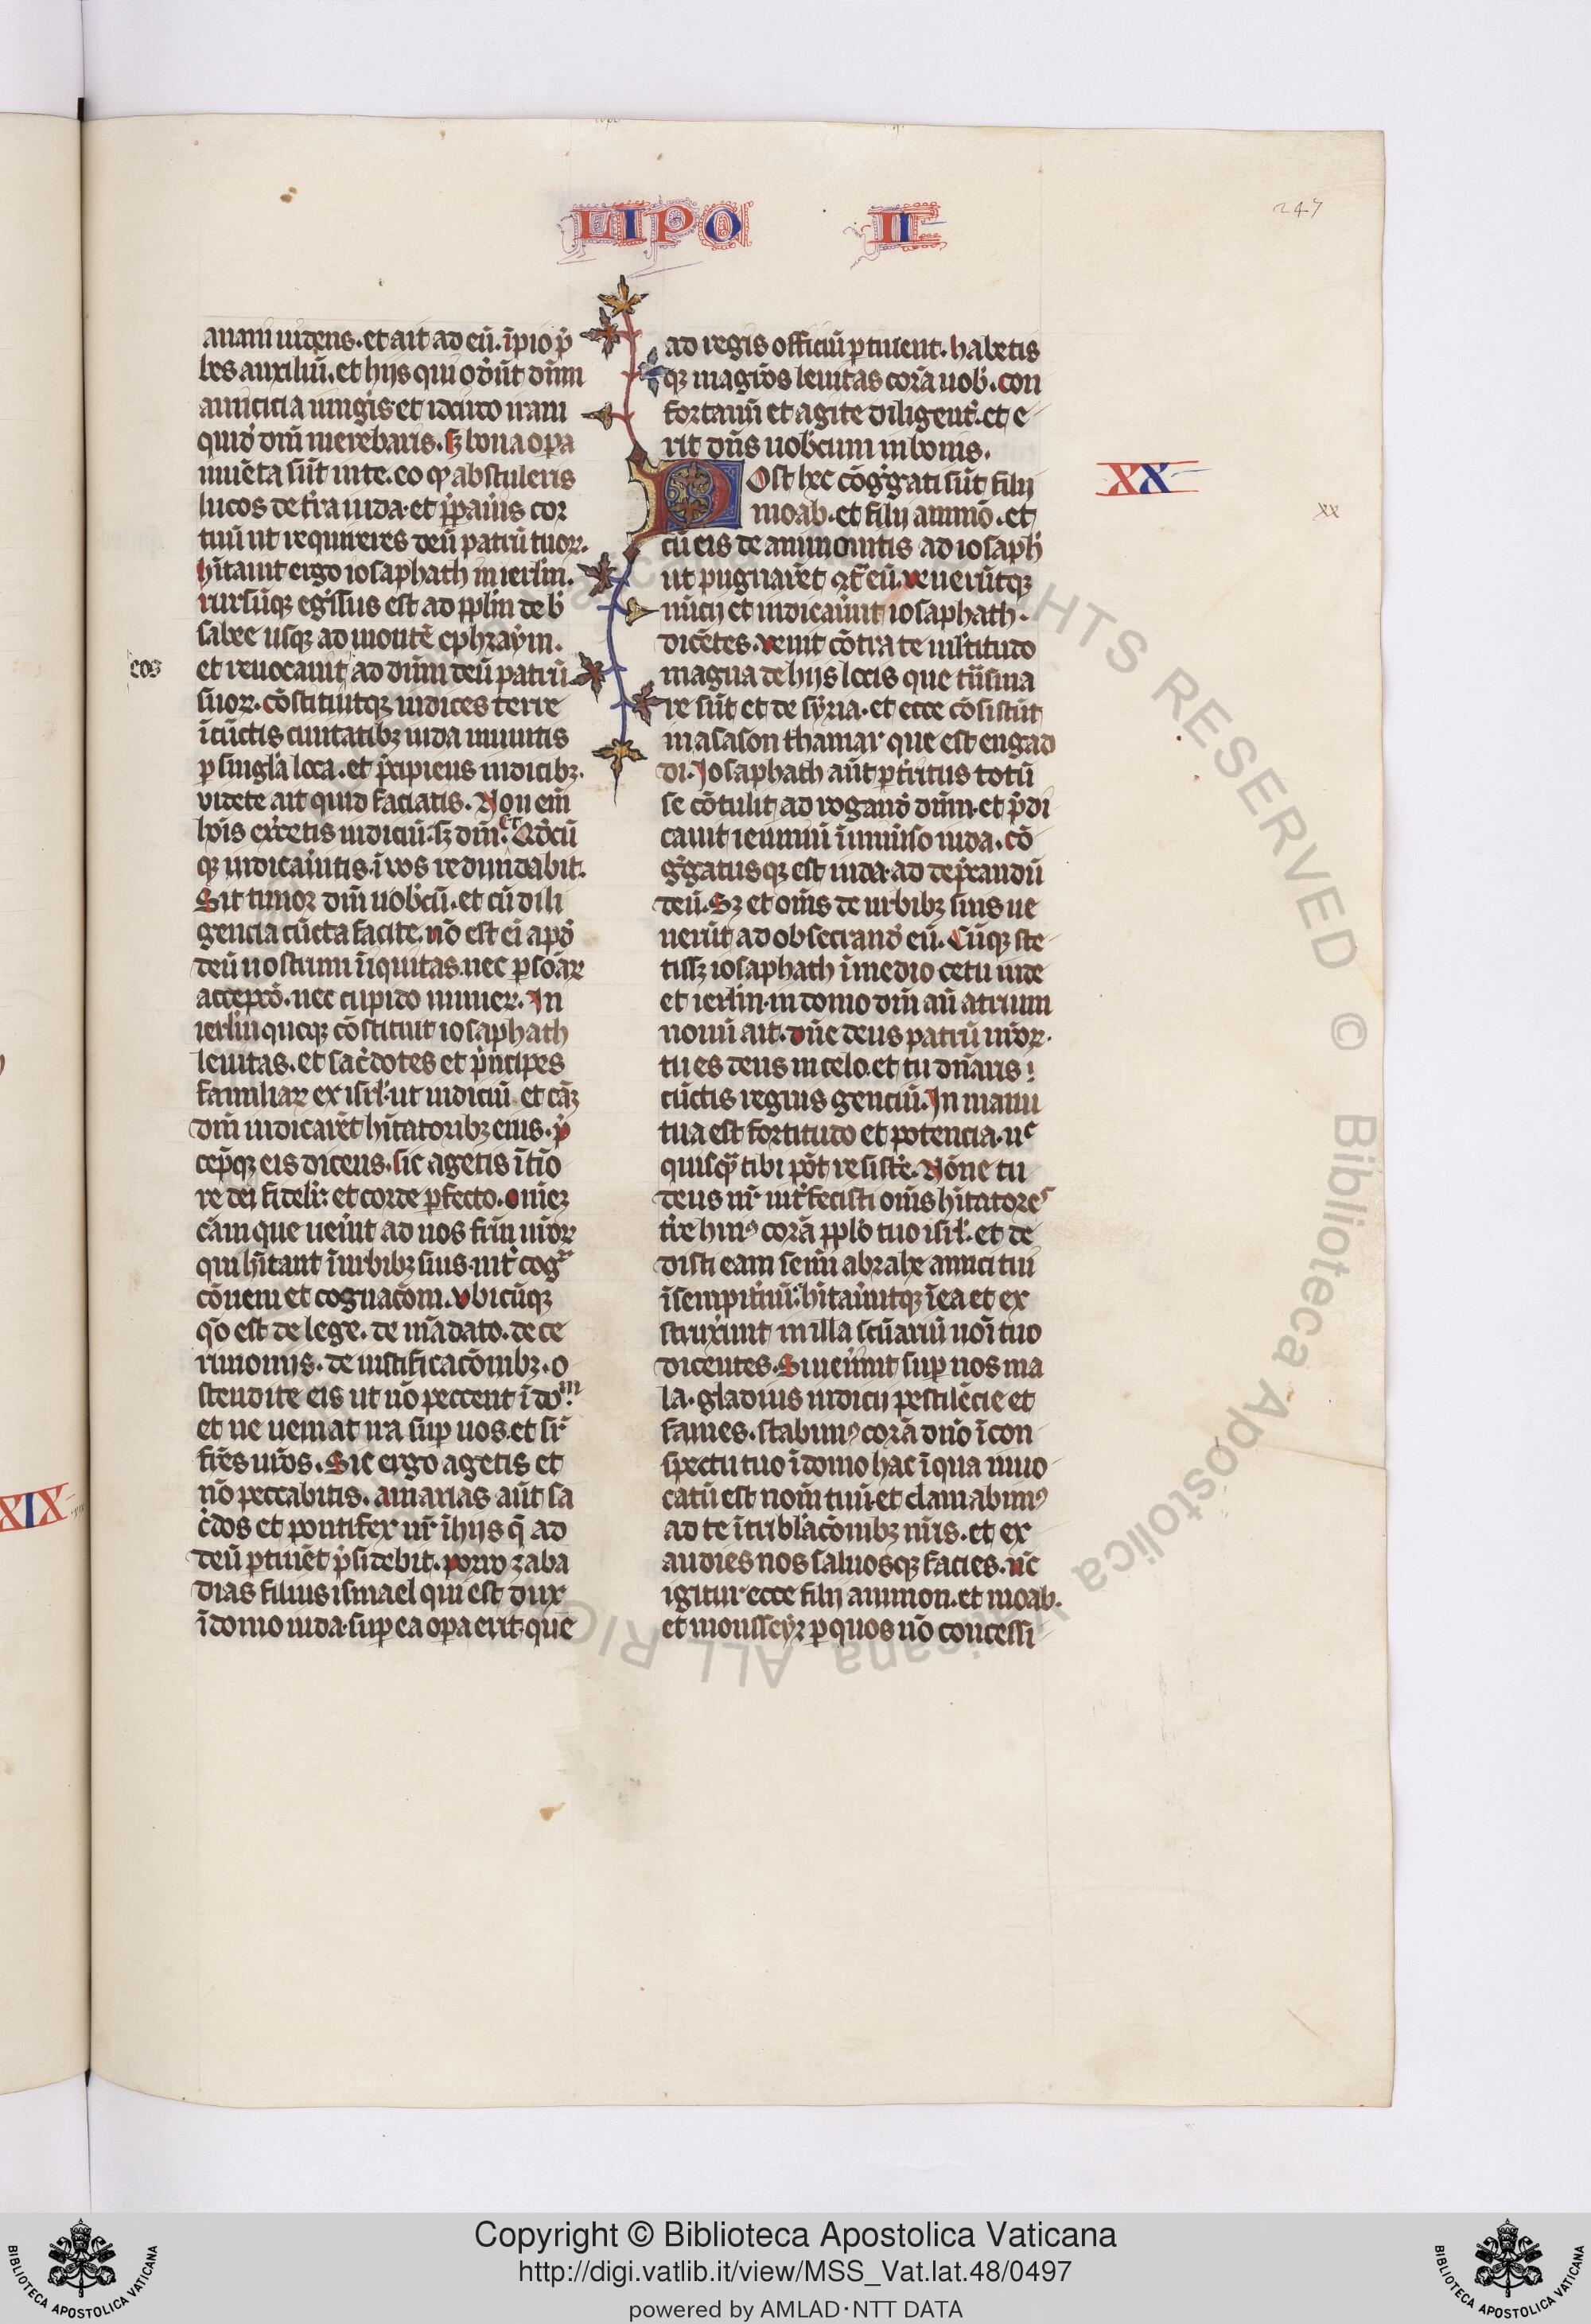 LIPO II
247
anani uidens. et ait ad eū. īpio p̄
bes auxiliū. et hijs qui odūt dn̄m
amicicia iungis. et idcirco iram
quid dn̄i merebaris. sꝫ bona opa
inuēta sūt in te. eo qꝫ abstuleris
lucos de t̄ra iuda. et p̄paūis cor
tuū ut requireres deū patrū tuoꝝ.
hītauit ergo iosaphath in ierl̄m.
rursūqꝫ egs̄sus est ad ppl̄m de b̄
sabee usqꝫ ad montē ephraym.
eos
et reuocauit ad dn̄m deū patrū
suoꝝ. cōstituitqꝫ iudices terre
ī cūctis ciuitatibꝫ iuda munitis
ꝑ singl̄a loca. et p̄cipiens iudicibꝫ.
videte ait quid faciatis. Non em̄
hoīs ex̄cetis iudiciū. sꝫ dn̄i. et Qd̄cū
qꝫ iudicau̅itis. ī uos redundabit.
Sit timor dn̄i uob̄cū. et cū dili
gencia cūcta facite. nō est ei apd̄
deū nostrum īiquitas. nec ꝑsōaꝝ
accepcō. nec cupido muneꝝ. In
ierl̄m quoqꝫ cōstituit iosaphath
leuitas. et sac̄dotes et p̄ncipes
familiaꝝ ex isrl̄. ut iudiciū et cām
dn̄i iudicarēt hītatoribꝫ eius. p̄
cepitqꝫ eis dicens. sic agetis ī tīo
re dei fidelr̄ et corde ꝑfecto. omēꝫ
cām que uen̄it ad uos fr̄m ur̄oꝝ
qui hītant ī urbibꝫ suis. int̄ cogͣ
cōnem et cognacōem. vbicūqꝫ
qō est de lege. de mādato. de ce
rimonijs. de iustificacōnibꝫ. o
stendite eis ut nō peccent ī dom̄.
et ne ueniat ira sup uos. et sr̄
fr̄es ur̄os. Sic ergo agetis et
nō peccabitis. amarias aūt sa
c̄dos et pontifex ur̄ ī hijs q̄ ad
deū ꝑtinēt p̄sidebit. porro zaba
dias filius ismael qui est dux
ī domo iuda. sup ea opa erit. que
XIX
ad regis officiū ꝑtinent. habetis
qꝫ magr̄os leuitas corā uob̄. con
fortami et agite diligent̄. et e
rit dn̄s uobcum in bonis.
XX
xx
Post hec cōgḡati sūt filij
moab. et filij ammō. et
cū eis de ammonitis ad iosaph̄
ut pugnarēt ꝯt̄ eū. veuerūtqꝫ
nūcij et indicauūt iosaphath.
dicētes. venit cōtra te mltitudo
magna de hijs locis que tn̄s ma
re sūt et de syria. et ecce cōsistūt
in asason thamar que est engad
di. Iosaphath aūt ꝑt̄ritus totū
se cōtulit ad rogand̄ dn̄m. et p̄di
cauit ieiuniū ī uniu̅so iuda. cō
gḡatusqꝫ est iuda. ad dep̄candū
deū. Sꝫ et om̄s de urbibꝫ suis ue
nerūt ad obsecrand̄ eū. Cūqꝫ ste
tissꝫ iosaphath ī medio cetu iude
et ierl̄m. in domo dn̄i an̄ atrium
nouū ait. dn̄e deus patrū nr̄oꝝ.
tu es deus in celo. et tu dn̄aris
cūctis regnis genciū. In manu
tua est fortitudo et potencia. nͨ
quisqͣ tibi pōt resist̄e. Nōne tu
deus nr̄ int̄fecisti om̄s hītatores
t̄re huiꝰ corā pplo tuo isrl̄. et de
disti eam semī abrahe amici tui
ī sempit̄nū. hītau̅itqꝫ ī ea et ex
struxūnt in illa sc̄uariū noī tuo
dicentes. Si uen̄int sup nos ma
la. gladius iudicij pestilēcie et
fames. stabimꝰ corā dn̄o ī con
spectu tuo ī domo hac ī qua inuo
catū est nom̄ tuū. et clamabimꝰ
ad te ī tribl̄acōnibꝫ nr̄is. et ex
audies nos saluosqꝫ facies. nc̄
igitur ecce filij ammon. et moab.
et mons seyr. ꝑ quos nō concessi
Copyright © Biblioteca Apostolica Vaticana
http://digi.vatlib.it/view/MSS_Vat.lat.48/0497
powered by AMLAD·NTT DATA
BIBLIOTECA APOSTOLICA VATICANA
BIBLIOTECA APOSTOLICA VATICANA